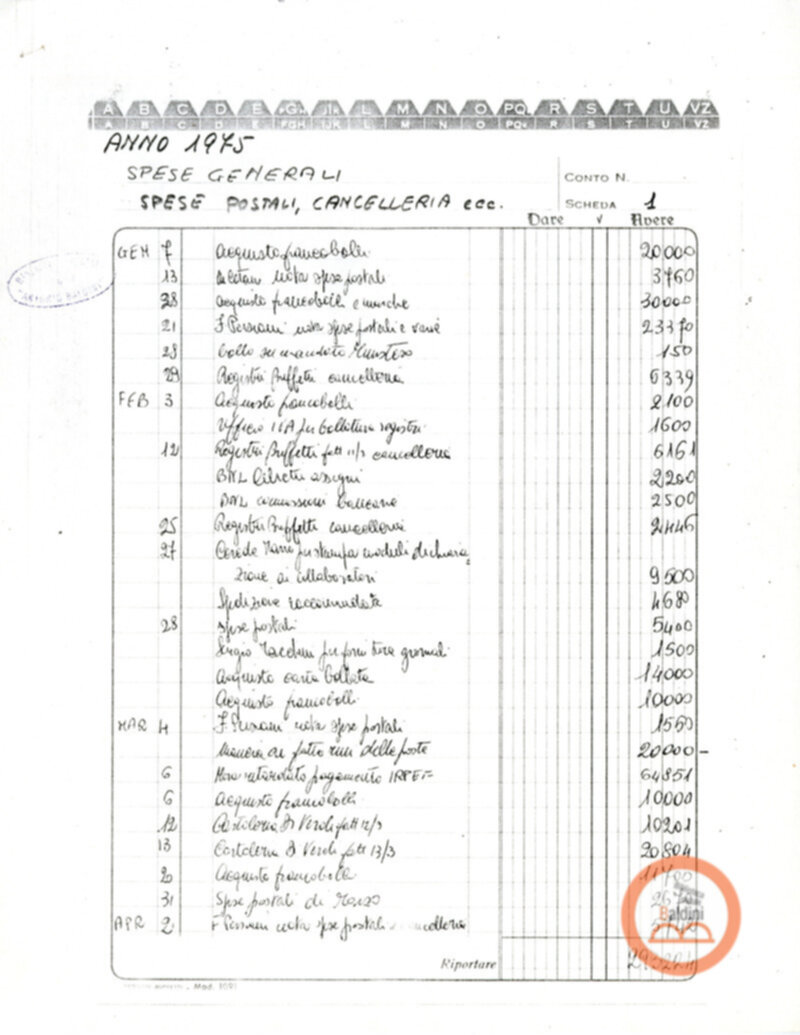 A B C D E FGH IJK L M N O PQ R S T U VZ
A B C D E FGH IJK L M N O PQ R S T U VZ
ANNO 1975
SPESE GENERALI
CONTO N.
SPESE POSTALI, CANCELLERIA ecc.
SCHEDA 1
Dare v Avere
GEN 7 Acquisto francobolli 20000
13 nota spese postali 3760
28 Acquisto francobolli e marche 30000
21 F. Persiani nota spese postali e varie 23370
28 bollo su mandato Ministero 150
29 Registri Buffetti cancelleria 6339
FEB 3 Acquisto francobolli 2100
Ufficio IVA per bollatura registri 1600
12 Registri Buffetti fatt 11/3 cancelleria 6161
BNL libretti assegni 2200
BNL commissioni bancarie 2500
25 Registri Buffetti cancelleria 2446
27 per stampa moduli dichiara
zione ai collaboratori 9500
Spedizione raccomandate 4680
28 spese postali 5400
Sergio per fornitura giornali 1500
Acquisto carta bollata 14000
Acquisto francobolli 10000
MAR 4 F. Persiani nota spese postali 1560
Mancia ai fattorini delle poste 20000 –
6 Mora ritardato pagamento IRPEF 64851
6 Acquisto francobolli 10000
12 Cartoleria D Verdi fatt 12/3 10201
13 Cartoleria D Verdi fatt 13/3 20804
20 Acquisto francobolli
31 Spese postali di Marzo
APR 2 F Persiani nota spese postali e cancelleria
Baldini
Riportare
Mod. 1091